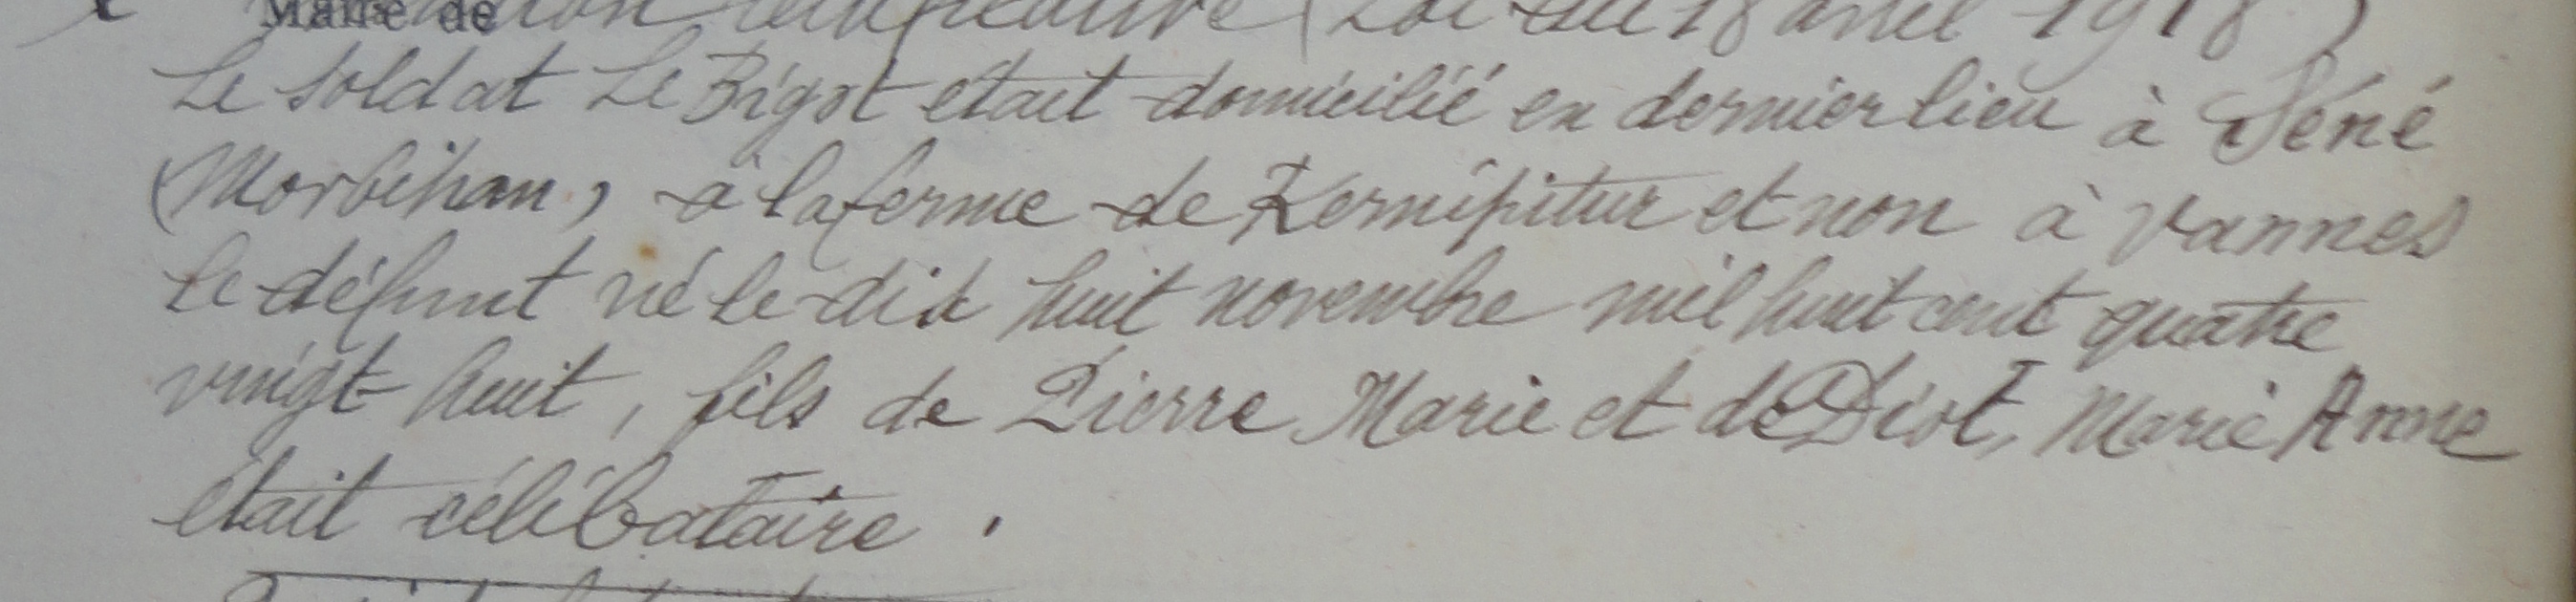 Maire de rectificative (Loi du 18 avril 1918)
Le soldat Le Bigot était domicilié en dernier lieu à Séné
(Morbihan, à la ferme de Kernipitur et non à Vannes
Le défunt né le dix huit novembre mil huit cent quatre
vingt huit, fils de Pierre Marie et de Diot, Marie Anne
était célibataire.